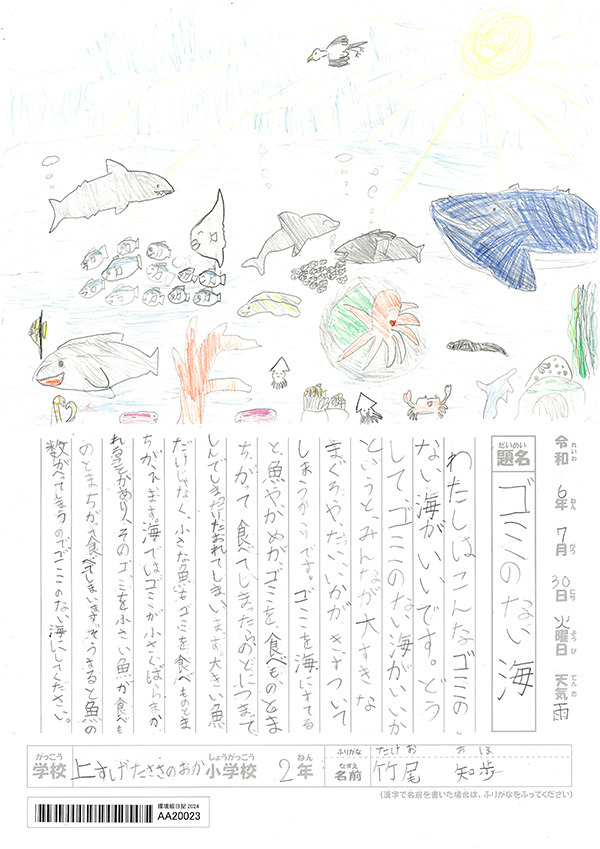 令和6年7月30日火曜日 天気 雨
れいわ ねん がつ にち ようび てんき
だいめい
題名 ゴミのない海
わたしはこんなゴミの
ない海がいいです。どう
して、ゴミのない海がいいか
というと、みんなが大すきな
まぐろや、たい、いかが、きずついて
しまうからです。ゴミを海にすてる
と、魚やかめがゴミを、食べものとま
ちがって食べてしまったらのどにつまって
しんでしまったりたおれてしまいます。大きい魚
だけじゃなく、小さな魚もゴミを食べものとま
ちがえます。海ではゴミが小さくばらまか
れることがあり、そのゴミを小さい魚が食べも
のとまちがって食べてしまいます。そうすると魚の
数がへってしまうのでゴミのない海にしてください。
がっこう しょうがっこう ねん
学校 上すげたささのおか小学校 2年
ふりがな たけお かほ
なまえ
名前 竹尾 知歩
(漢字で名前を書いた場合は、ふりがなをふってください)
環境絵日記 2024
AA20023